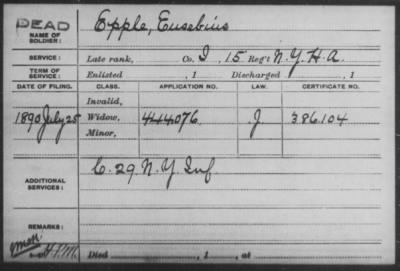 DEAD
NAME OF SOLDIER: Epple, Eusebius
SERVICE: Late rank, Co. I, 15 Reg't N.Y.H.A.
TERM OF SERVICE: Enlisted , 1 Discharged , 1
DATE OF FILING. CLASS. APPLICATION NO. LAW. CERTIFICATE NO.
Invalid,
1890 July 25 Widow, 444076 J. 386.104
Minor,
ADDITIONAL SERVICES: C. 29. N.Y. Inf.
REMARKS:
Died , 1 , at